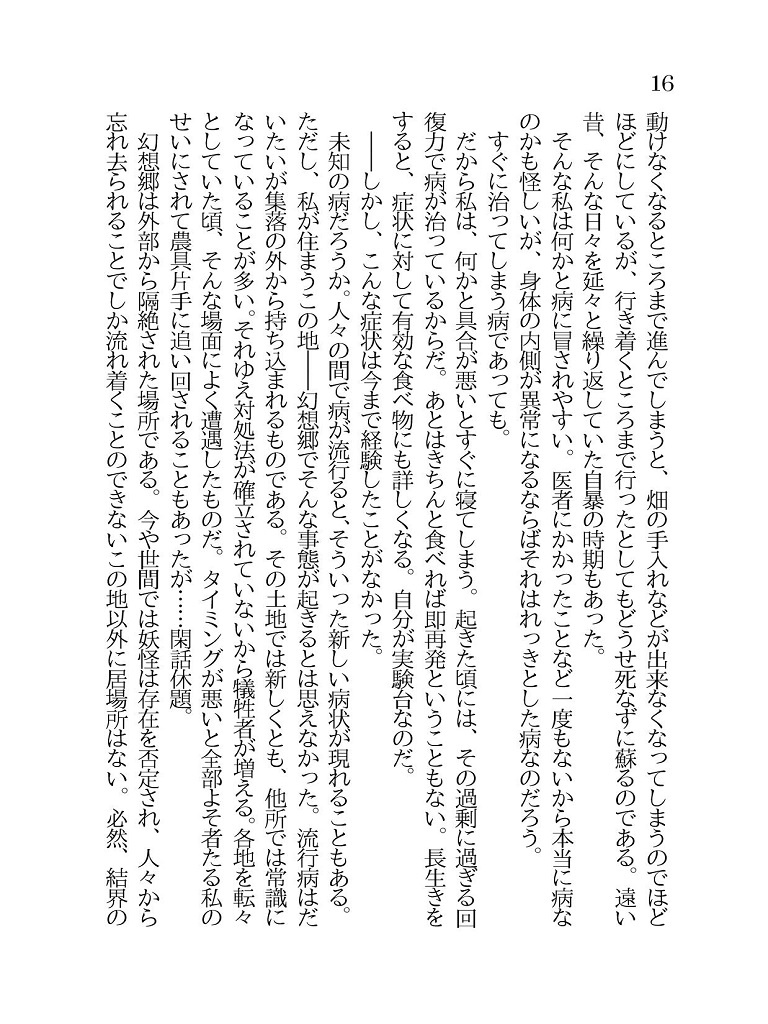 16
動けなくなるところまで進んでしまうと、畑の手入れなどが出来なくなってしまうのでほど
ほどにしているが、行き着くところまで行ったとしてもどうせ死なずに蘇るのである。遠い
昔、そんな日々を延々と繰り返していた自暴の時期もあった。
そんな私は何かと病に冒されやすい。医者にかかったことなど一度もないから本当に病な
のかも怪しいが、身体の内側が異常になるならばそれはれっきとした病なのだろう。
すぐに治ってしまう病であっても。
だから私は、何かと具合が悪いとすぐに寝てしまう。起きた頃には、その過剰に過ぎる回
復力で病が治っているからだ。あとはきちんと食べれば即再発ということもない。長生きを
すると、症状に対して有効な食べ物にも詳しくなる。自分が実験台なのだ。
――しかし、こんな症状は今まで経験したことがなかった。
未知の病だろうか。人々の間で病が流行ると、そういった新しい病状が現れることもある。
ただし、私が住まうこの地――幻想郷でそんな事態が起きるとは思えなかった。流行病はだ
いたいが集落の外から持ち込まれるものである。その土地では新しくとも、他所では常識に
なっていることが多い。それゆえ対処法が確立されていないから犠牲者が増える。各地を転々
としていた頃、そんな場面によく遭遇したものだ。タイミングが悪いと全部よそ者たる私の
せいにされて農具片手に追い回されることもあったが……閑話休題。
幻想郷は外部から隔絶された場所である。今や世間では妖怪は存在を否定され、人々から
忘れ去られることでしか流れ着くことのできないこの地以外に居場所はない。必然、結界の